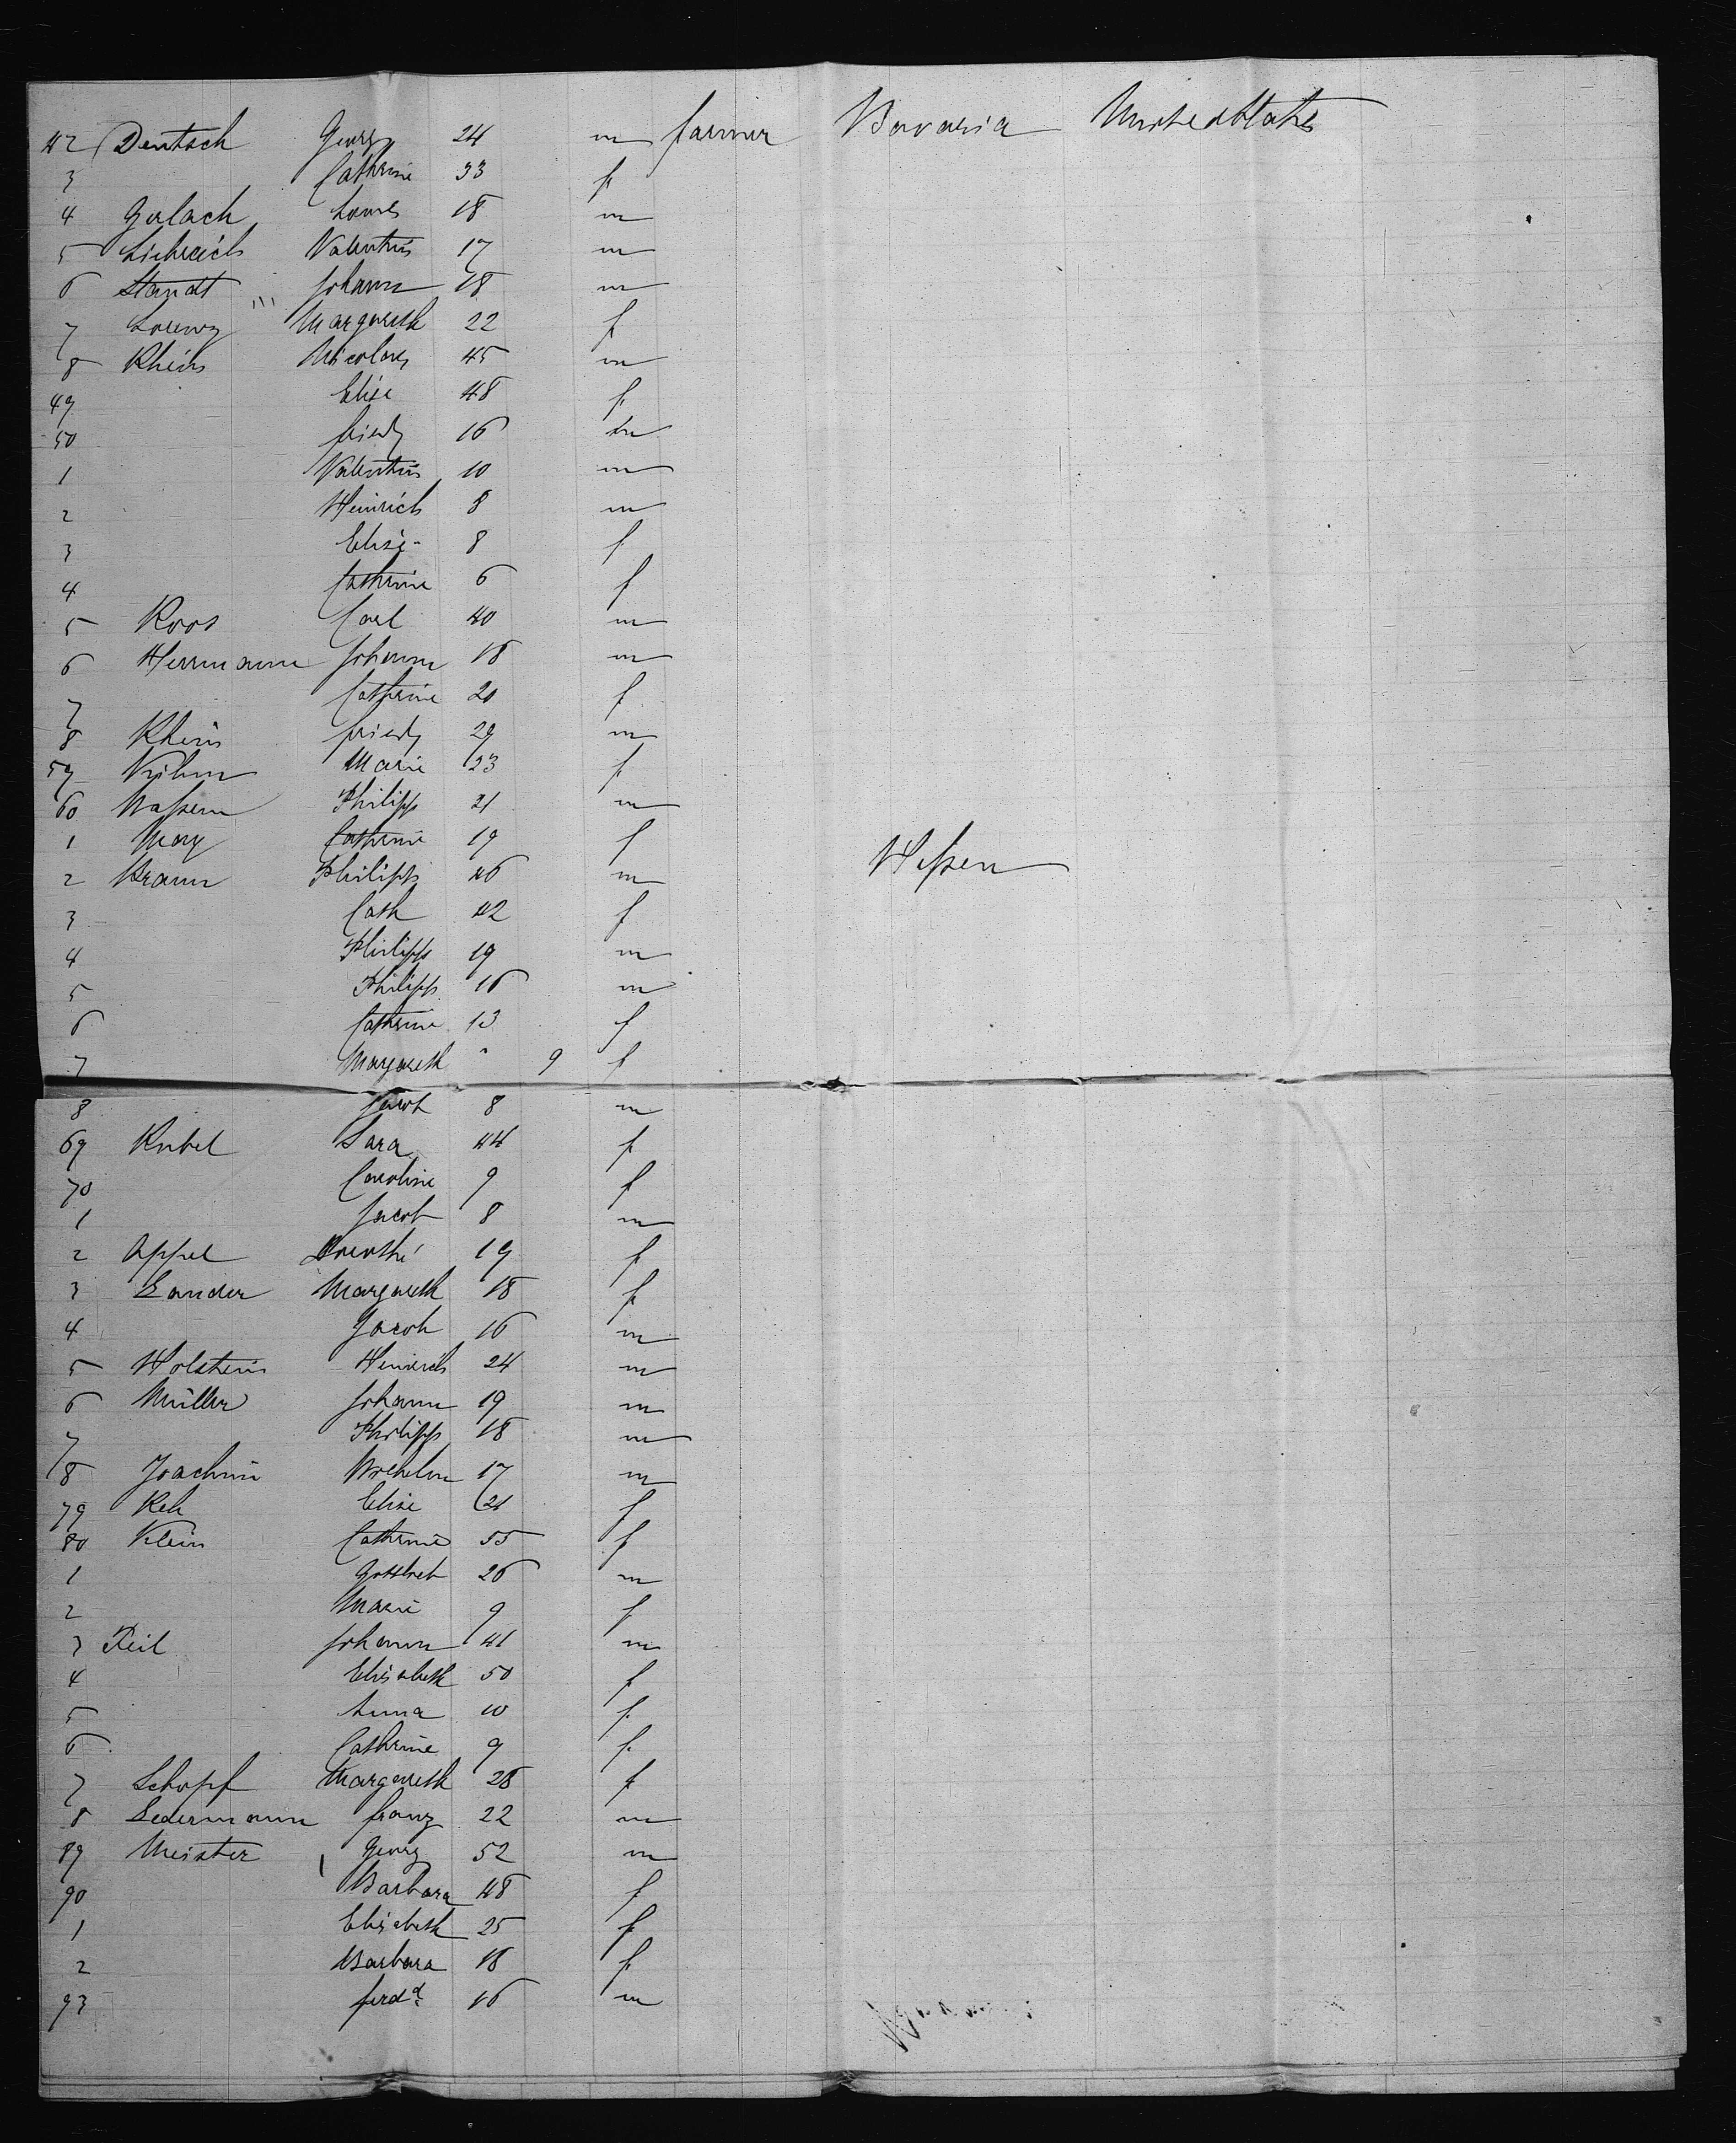 42 Deutsch Georg 24 m farmer Bavaria United States
3 Cathrine 33 f
4 Gerlach Louis 18 m
5 Valentin 17 m
6 Staudt Johann 18 m
7 Lorenz Margareth 22 f
8 Rhein Nicolaus 45 m
49 Elise 48 f
50 friedr 16 m
1 Valentin 10 m
2 Heinrich 8 m
3 Elise 8 f
4 Cathrine 6 f
5 Roos Carl 40 m
6 Herrmann Johann 18 m
7 Catherine 20 f
8 Rhein friedr 29 m
59 Marie 23 f
60 Wassem Philipp 21 m
1 May Catherine 19 f
2 Braun Philipp 46 m Hessen
3 Cath 42 f
4 Philipp 19 m
5 Philipp 16 m
6 Cathrine 13 f
7 Margareth " 9 f
8 Jacob 8 m
69 Kubel Sara 44 f
70 Caroline 9 f
1 Jacob 8 m
2 Appel Dorothe 19 f
3 Sander Margareth 18 f
4 Jacob 16 m
5 Holstein Heinrich 24 m
6 Müller Johann 19 m
7 Philipp 18 m
8 Joachim Wilhelm 17 m
79 Reh Elise 21 f
80 Klein Catherine 55 f
1 Gottlieb 26 m
2 Marie 9 f
3 Keil Johann 41 m
4 Elisabeth 50 f
5 Anna 10 f
6 Cathrine 9 f
7 Schopf Margareth 28 f
8 Ledermann franz 22 m
89 Meister Georg 52 m
90 Barbara 48 f
1 Elisabeth 25 f
2 Barbara 18 f
93 ferdd 16 m